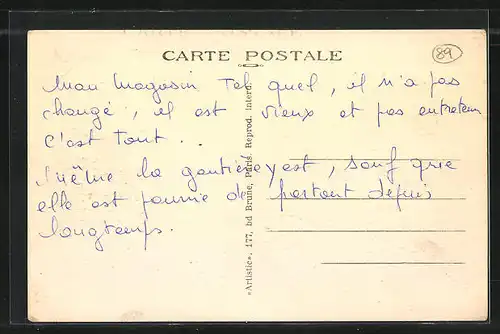 CARTE POSTALE
89
Mon Magasin tel quel, il n'a pas
changé, il est vieux et pas entretenu
c'est tout . .
même la goutière y est, sauf que
elle est pourrie de partout depuis
longtemps.
«Artistic», 177, bd Brune, Paris. Reprod. Interd.